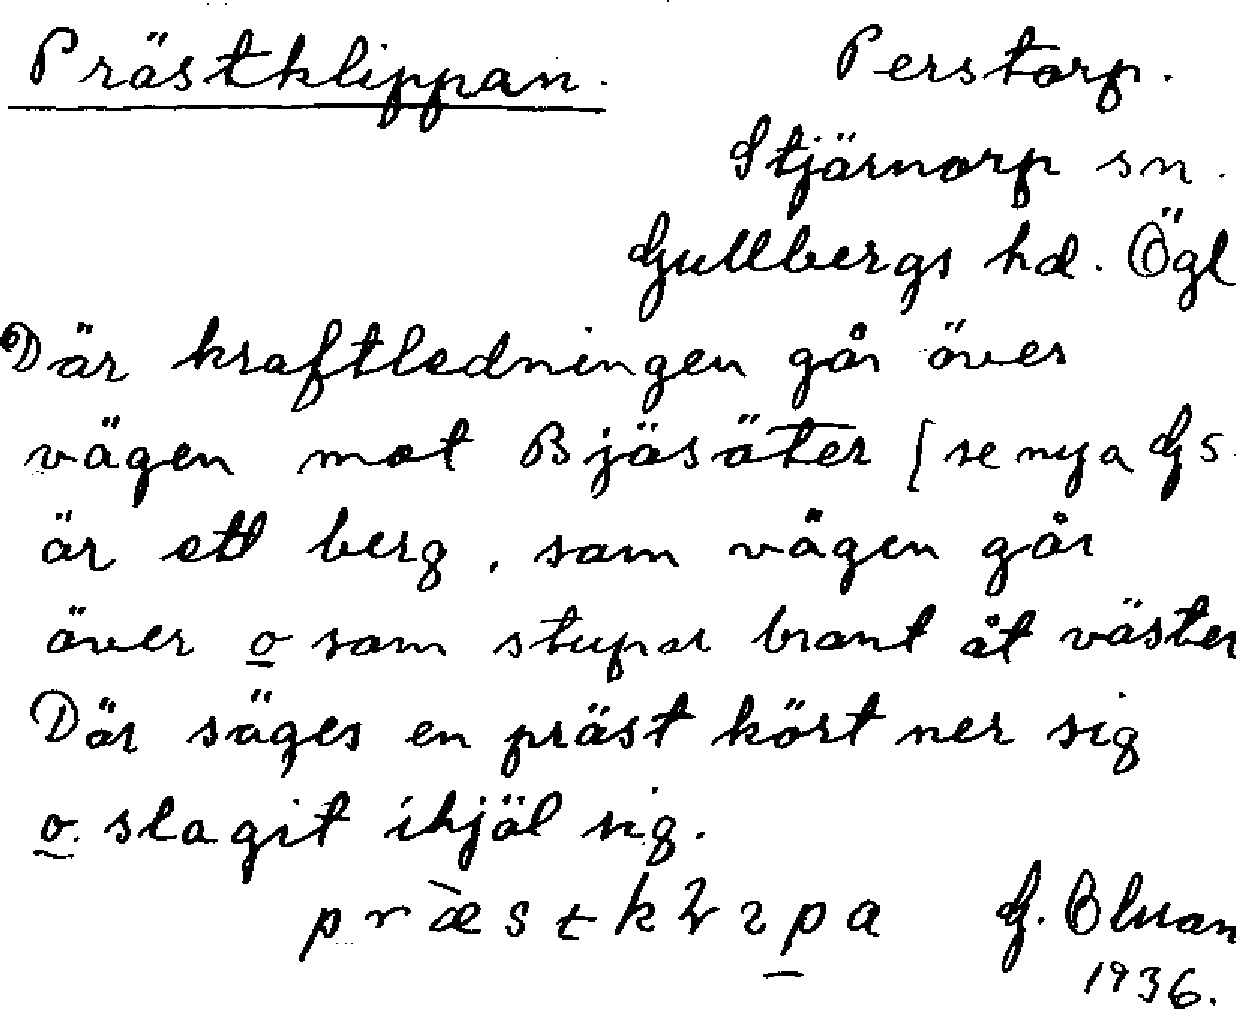 Prästklippan. Perstorp.
Stjärnorp sn.
Gullbergs hd. Ögl
Där kraftledningen går över
vägen mot Bjäsäter (se nya Gs.
är ett berg, som vägen går
över o som stupar brant åt väster
Där säges en präst kört ner sig
o. slagit ihjäl sig.
G.
1936.